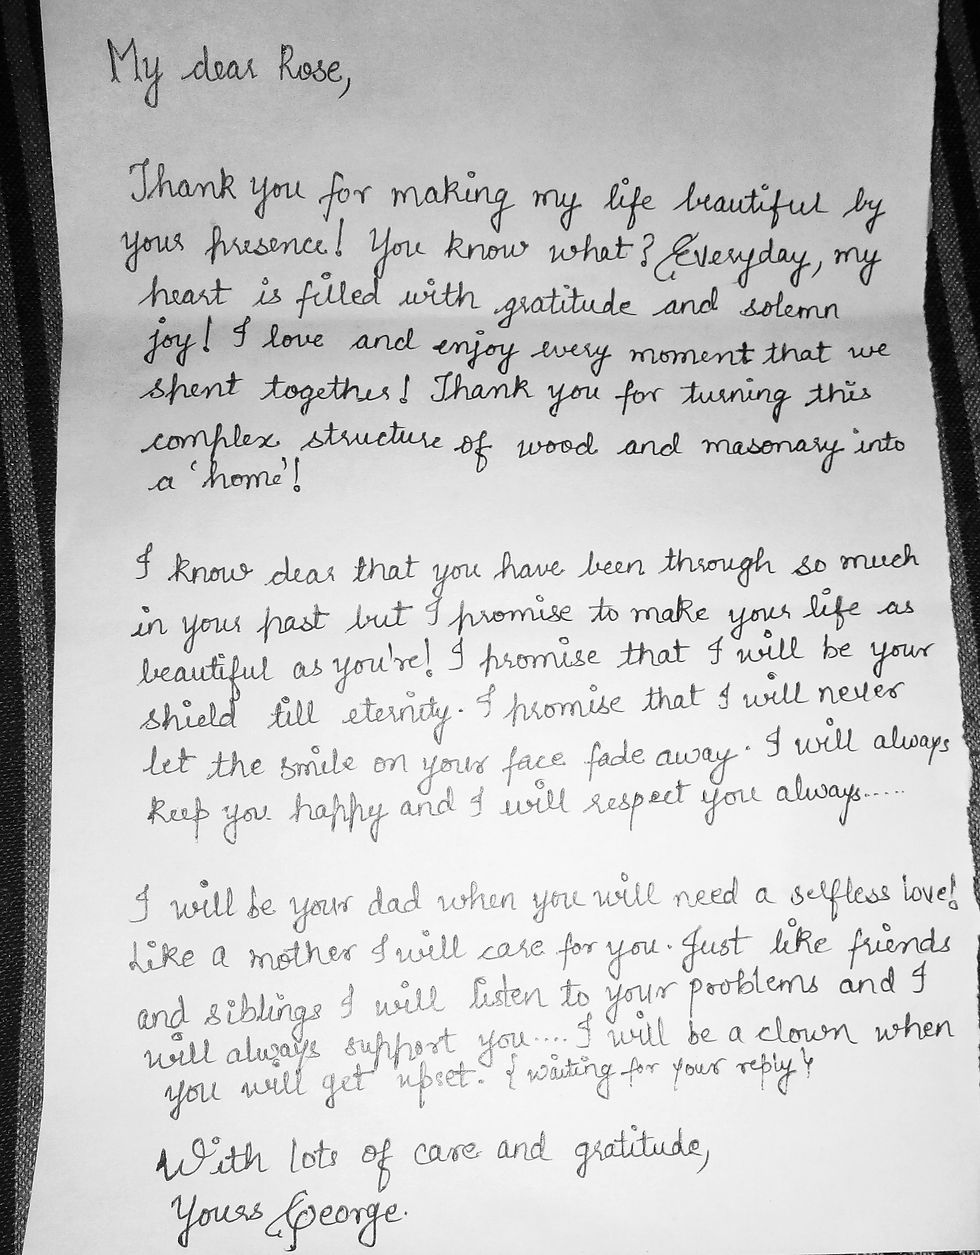 My dear Rose,
Thank you for making my life beautiful by
your presence! You know what? Everyday, my
heart is filled with gratitude and solemn
joy! I love and enjoy every moment that we
spent together! Thank you for turning this
complex structure of wood and masonary into
a 'home'!
I know dear that you have been through so much
in your past but I promise to make your life as
beautiful as you're! I promise that I will be your
shield till eternity. I promise that I will never
let the smile on your face fade away. I will always
keep you happy and I will respect you always.....
I will be your dad when you will need a selfless love!
Like a mother I will care for you. Just like friends
and siblings I will listen to your problems and I
will always support you.... I will be a clown when
you will get upset. {waiting for your reply}
With lots of care and gratitude,
Yours George.